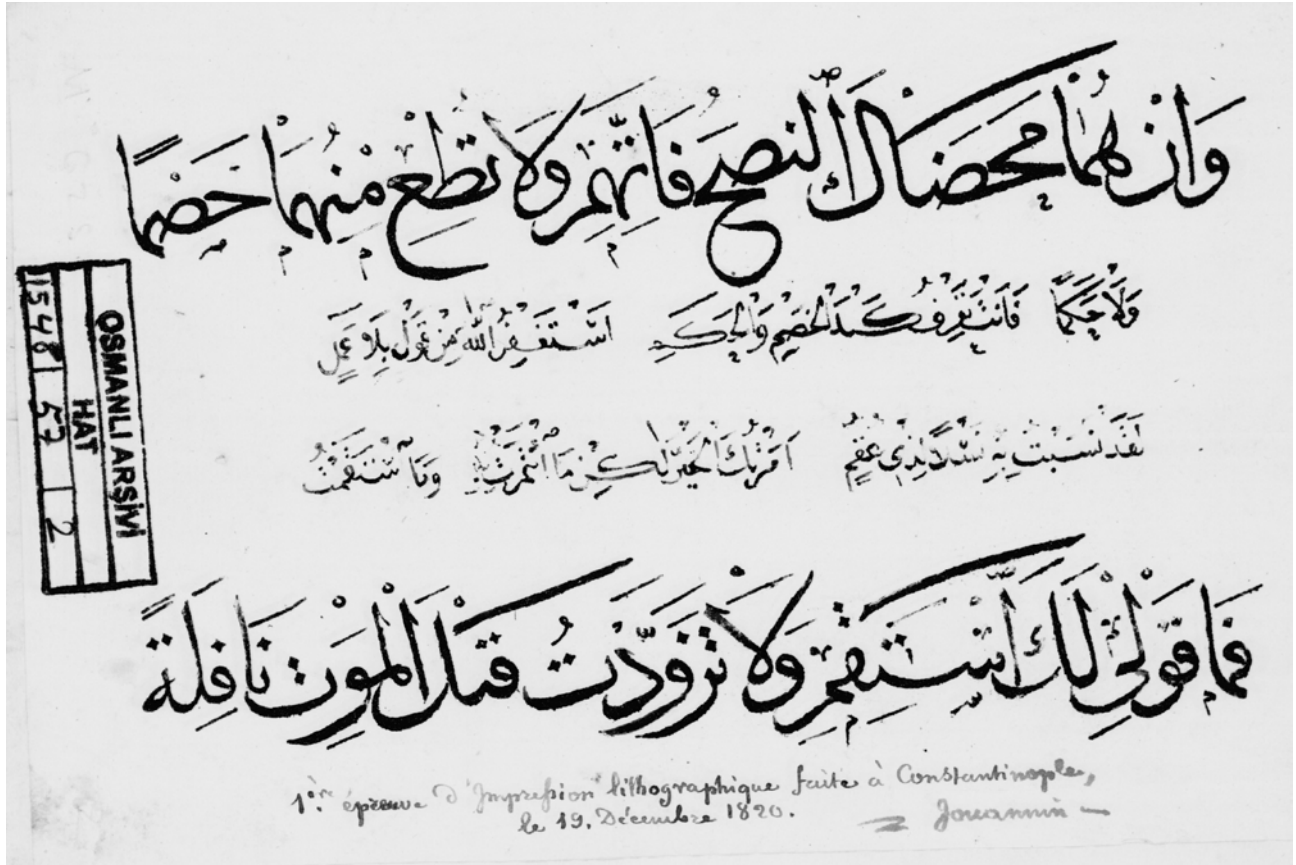 وَاِنْ هُمَا مَحَضَاكَ النُّصْحَ فَاتَّهِمِ وَلَا تُطِعْ مِنْهُمَا خَصْمًا
وَلَا حَكَمًا فَاَنْتَ تَعْرِفُ كَيْدَ الْخَصْمِ وَالْحَكَمِ اَسْتَغْفِرُ اللّٰهَ مِنْ قَوْلٍ بِلَا عَمَلٍ
لَقَدْ نَسَبْتُ بِهِ نَسْلًا لِذِي عُقُمٍ اَمَرْتُكَ الْخَيْرَ لٰكِنْ مَا ائْتَمَرْتُ بِهِ وَمَا اسْتَقَمْتُ
فَمَا قَوْلِي لَكَ اسْتَقِمِ وَلَا تَزَوَّدْتُ قَبْلَ الْمَوْتِ نَافِلَةً
1ère épreuve d'Impression lithographique faite à Constantinople,
le 19. Décembre 1820. Jouannin
OSMANLI ARŞİVİ
HAT
1548 57 2